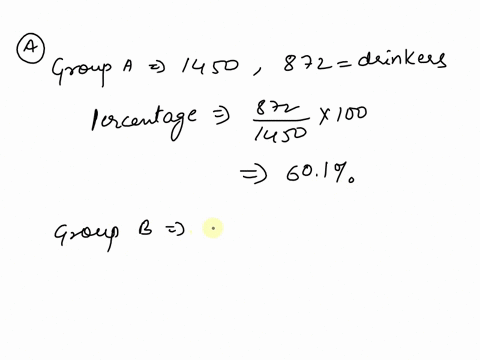 A
Group A ⇒ 1450 , 872 = drinkers
Percentage ⇒ 872/1450 × 100
⇒ 60.1%.
Group B ⇒